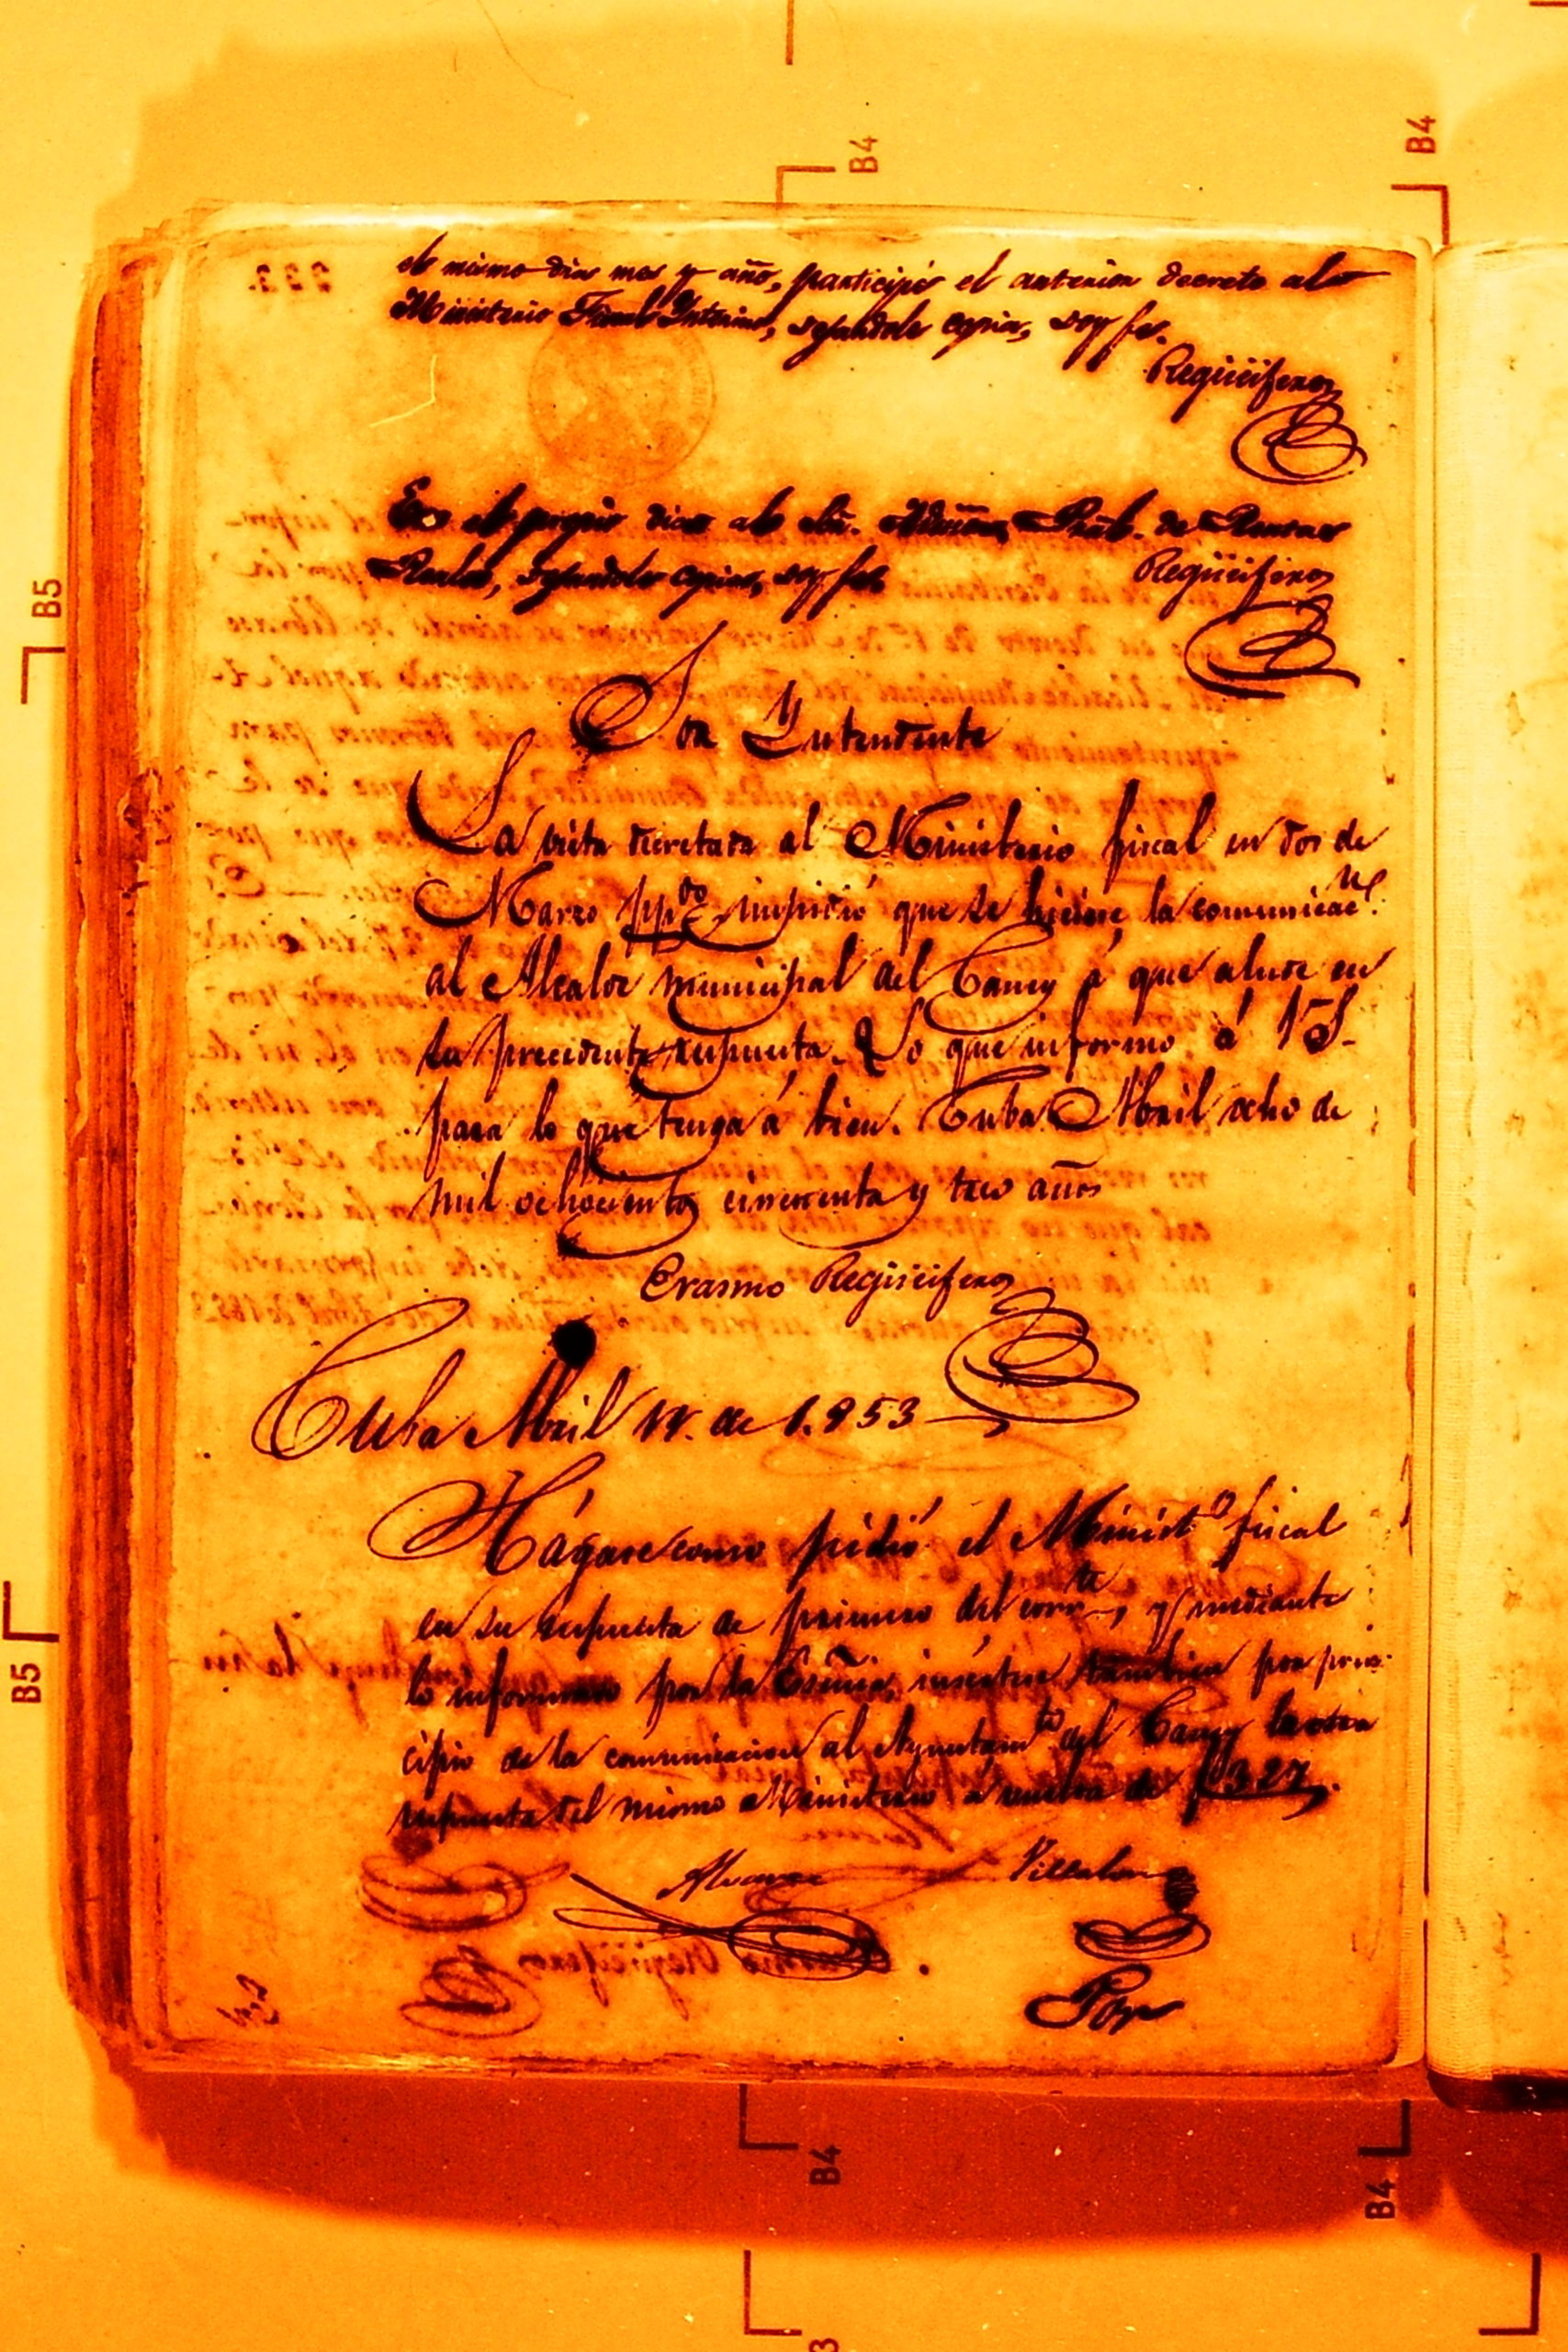 el mismo dia mes y año, participé el anterior decreto al
Ministerio Fiscal Interino, dejandole copia, doy fe.
Regüeiferos
En el propio dia al Sr. Admõr. de Rentas
Reales, dejandole copia, doy fe.
Regüeiferos
Sor Yntendente
La vista decretada al Ministerio fiscal en dos de
Marzo pp.do impidió que se hiciese la comunicac.n
al Alcalde municipal del Caney á que alude en
su precedente respuesta. Lo que informo á VS.
para lo que tenga á bien. Cuba Abril ocho de
mil ochocientos cincuenta y tres años
Erasmo Regüeiferos
Cuba Abril de 1.853
Hágase como pidió el Minist.o fiscal
en su respuesta de primero del corr.te, y mediante
lo informado por la Esñia, insértese tambien por prin-
cipio de la comunicacion al Ayuntam.to del Caney la otra
respuesta del mismo Ministerio á vuelta de f 327.
Villalon
Por
B4
B4
B5
B5
B4
B4